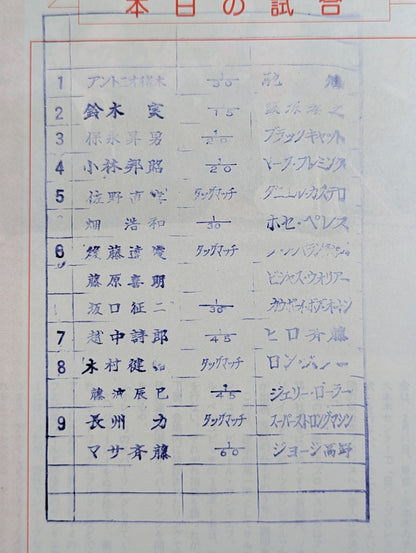 本日の試合
1 アントニオ猪木 1/30
2 鈴木 実 1/15
3 保永昇男 1/20 ブラックキャット
4 小林邦昭 1/20 マーク・フレミング
5 佐野直 タッグマッチ ダニエル・カステロ
畑 浩和 1/30 ホセ・ペレス
6 後藤達 タッグマッチ
藤原喜明 ビジャス・ウォリアー
坂口征二 1/30
7 越中詩郎 1/45 ヒロ斉藤
8 木村健 タッグマッチ ロン・
藤波辰巳 1/45 ジェリー・ローラー
9 長州 力 タッグマッチ スーパーストロングマシン
マサ斉藤 1/60 ジョージ高野